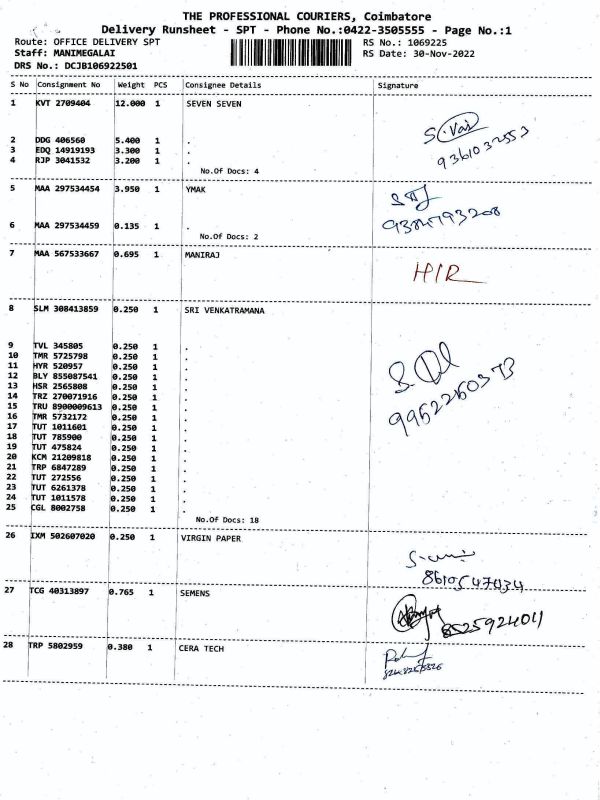 THE PROFESSIONAL COURIERS, Coimbatore
Delivery Runsheet - SPT - Phone No.:0422-3505555 - Page No.:1
Route: OFFICE DELIVERY SPT RS No.: 1069225
Staff: MANIMEGALAI RS Date: 30-Nov-2022
DRS No.: DCJB106922501
S No Consignment No Weight PCS Consignee Details Signature
1 KVT 2709404 12.000 1 SEVEN SEVEN
2 DDG 406560 5.400 1 .
3 EDQ 14919193 3.300 1 .
4 RJP 3041532 3.200 1 .
No.Of Docs: 4
9361032553
5 MAA 297534454 3.950 1 YMAK
6 MAA 297534459 0.135 1 .
No.Of Docs: 2
7 MAA 567533667 0.695 1 MANIRAJ
HIR
8 SLM 308413859 0.250 1 SRI VENKATRAMANA
9 TVL 345805 0.250 1 .
10 TMR 5725798 0.250 1 .
11 HYR 520957 0.250 1 .
12 BLY 855087541 0.250 1 .
13 HSR 2565808 0.250 1 .
14 TRZ 270071916 0.250 1 .
15 TRU 8900009613 0.250 1 .
16 TMR 5732172 0.250 1 .
17 TUT 1011601 0.250 1 .
18 TUT 785900 0.250 1 .
19 TUT 475824 0.250 1 .
20 KCM 21209818 0.250 1 .
21 TRP 6847289 0.250 1 .
22 TUT 272556 0.250 1 .
23 TUT 6261378 0.250 1 .
24 TUT 1011578 0.250 1 .
25 CGL 8002758 0.250 1 .
No.Of Docs: 18
26 IXM 502607020 0.250 1 VIRGIN PAPER
8610547434
27 TCG 40313897 0.765 1 SEMENS
8525924011
28 TRP 5802959 0.380 1 CERA TECH